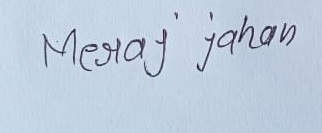 Meraj jahan